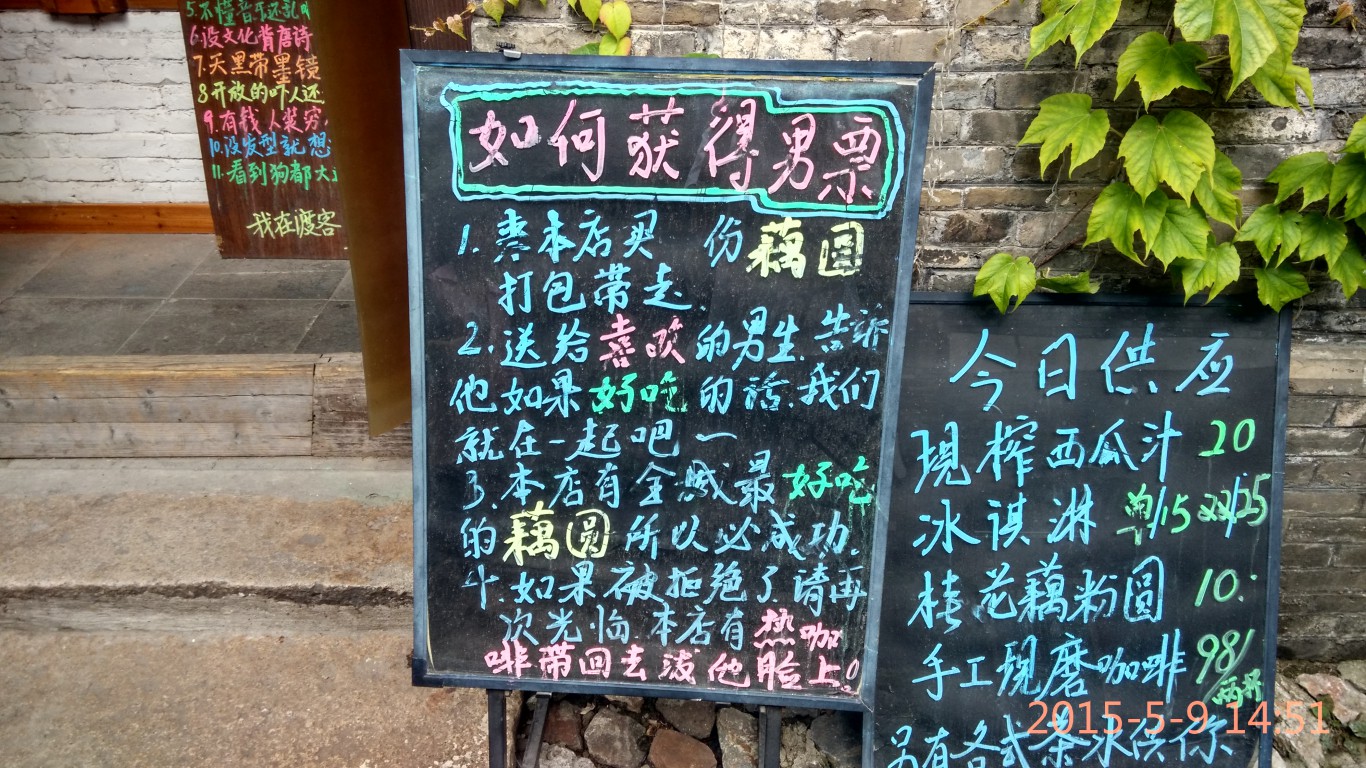 5.不懂音乐还乱
6.没文化背唐诗
7.天黑带墨镜
8开放的吓人还
9.有钱人装穷
10.没发型就想
11.看到狗都大
我在渡客
如何获得男票
1.来本店买 份藕圆
打包带走.
2.送给喜欢的男生.告诉
他如果好吃的话.我们
就在一起吧一
3.本店有全城最好吃
的藕圆所以必成功.
4.如果被拒绝了请再
次光临.本店有热咖
啡带回去泼他脸上!
今日供应
現榨西瓜汁 20
冰淇淋 单/15 双/25
桂花藕粉圆 10.
手工现磨咖啡 98/
两杯
另有各式茶水供你
2015-5-9 14:51